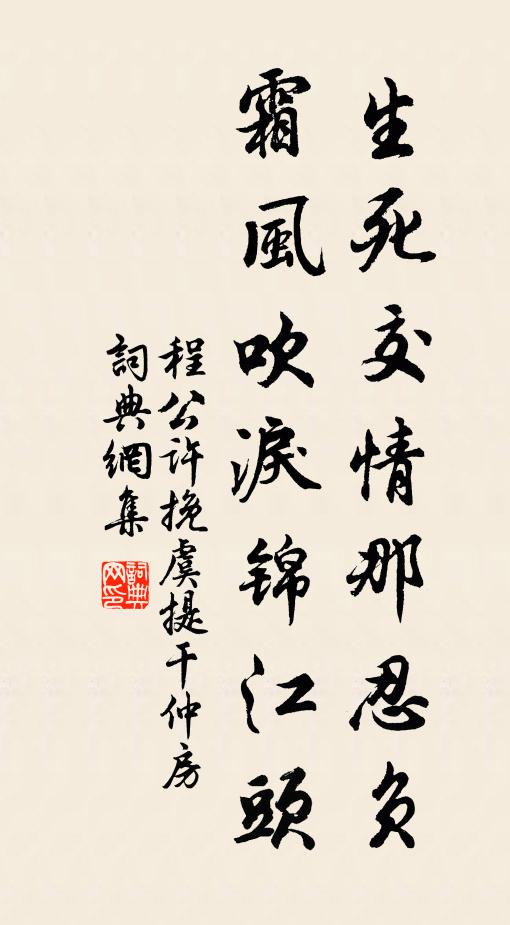 生死交情那忍負
霜風吹淚錦江頭
程公許挽虞提干仲房
詞典網集
詞典
网印